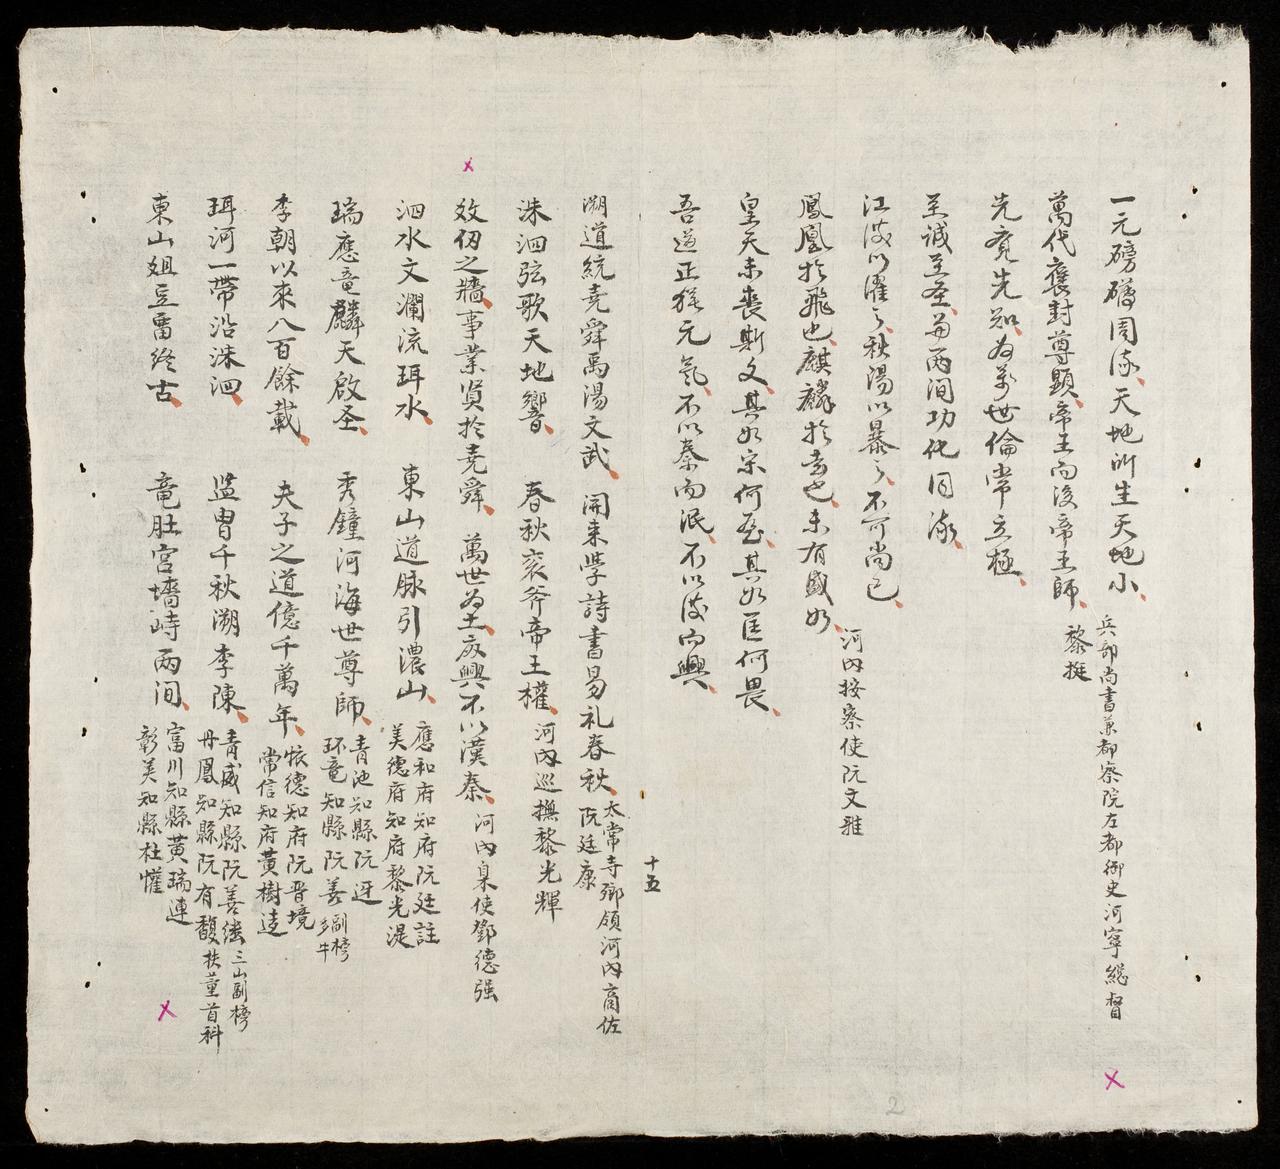 一元磅礴周流天地所生天地小
兵部尚書兼都察院左都御史河寧總督
黎挺
萬代褒封尊顯帝王而後帝王師
先覺先知為萬世倫常立極
至誠至圣兩間功化同流
江漢以濯之秋湯以暴之不可尚已
鳳凰於飛也麒麟於走也未有盛如
河內按察使阮文雅
皇天未喪斯文其如宋何其如匡何畏
吾道正猶元氣不以秦而泯不以漢而興
十五
溯道統堯舜禹湯文武 開來學詩書易礼春秋
太常寺鄉領河內商佐
阮廷康
洙泗弦歌天地響 春秋袞斧帝王權
河內巡撫黎光輝
效仞之牆事業賢於堯舜 萬世為土廢興不以漢秦
河內臬使鄧德强
泗水文瀾流珥水 東山道脉引濃山
應和府知府阮廷註
美德府知府黎光湜
瑞應竜麟天啟圣 秀鐘河海世尊師
青池知縣阮迓
环竜知縣阮善 副榜 多牛
李朝以來八百餘載 夫子之道億千萬年
依德知府阮晋境
常信知府黃樹逵
珥河一帶沿洙泗 监胄千秋溯李陳
青威知縣阮善 三山副榜
丹鳳知縣阮有馥 扶董首科
東山俎豆畱終古 竜肚宮墻峙兩间
富川知縣黃瑞連
彰美知縣杜懽
2